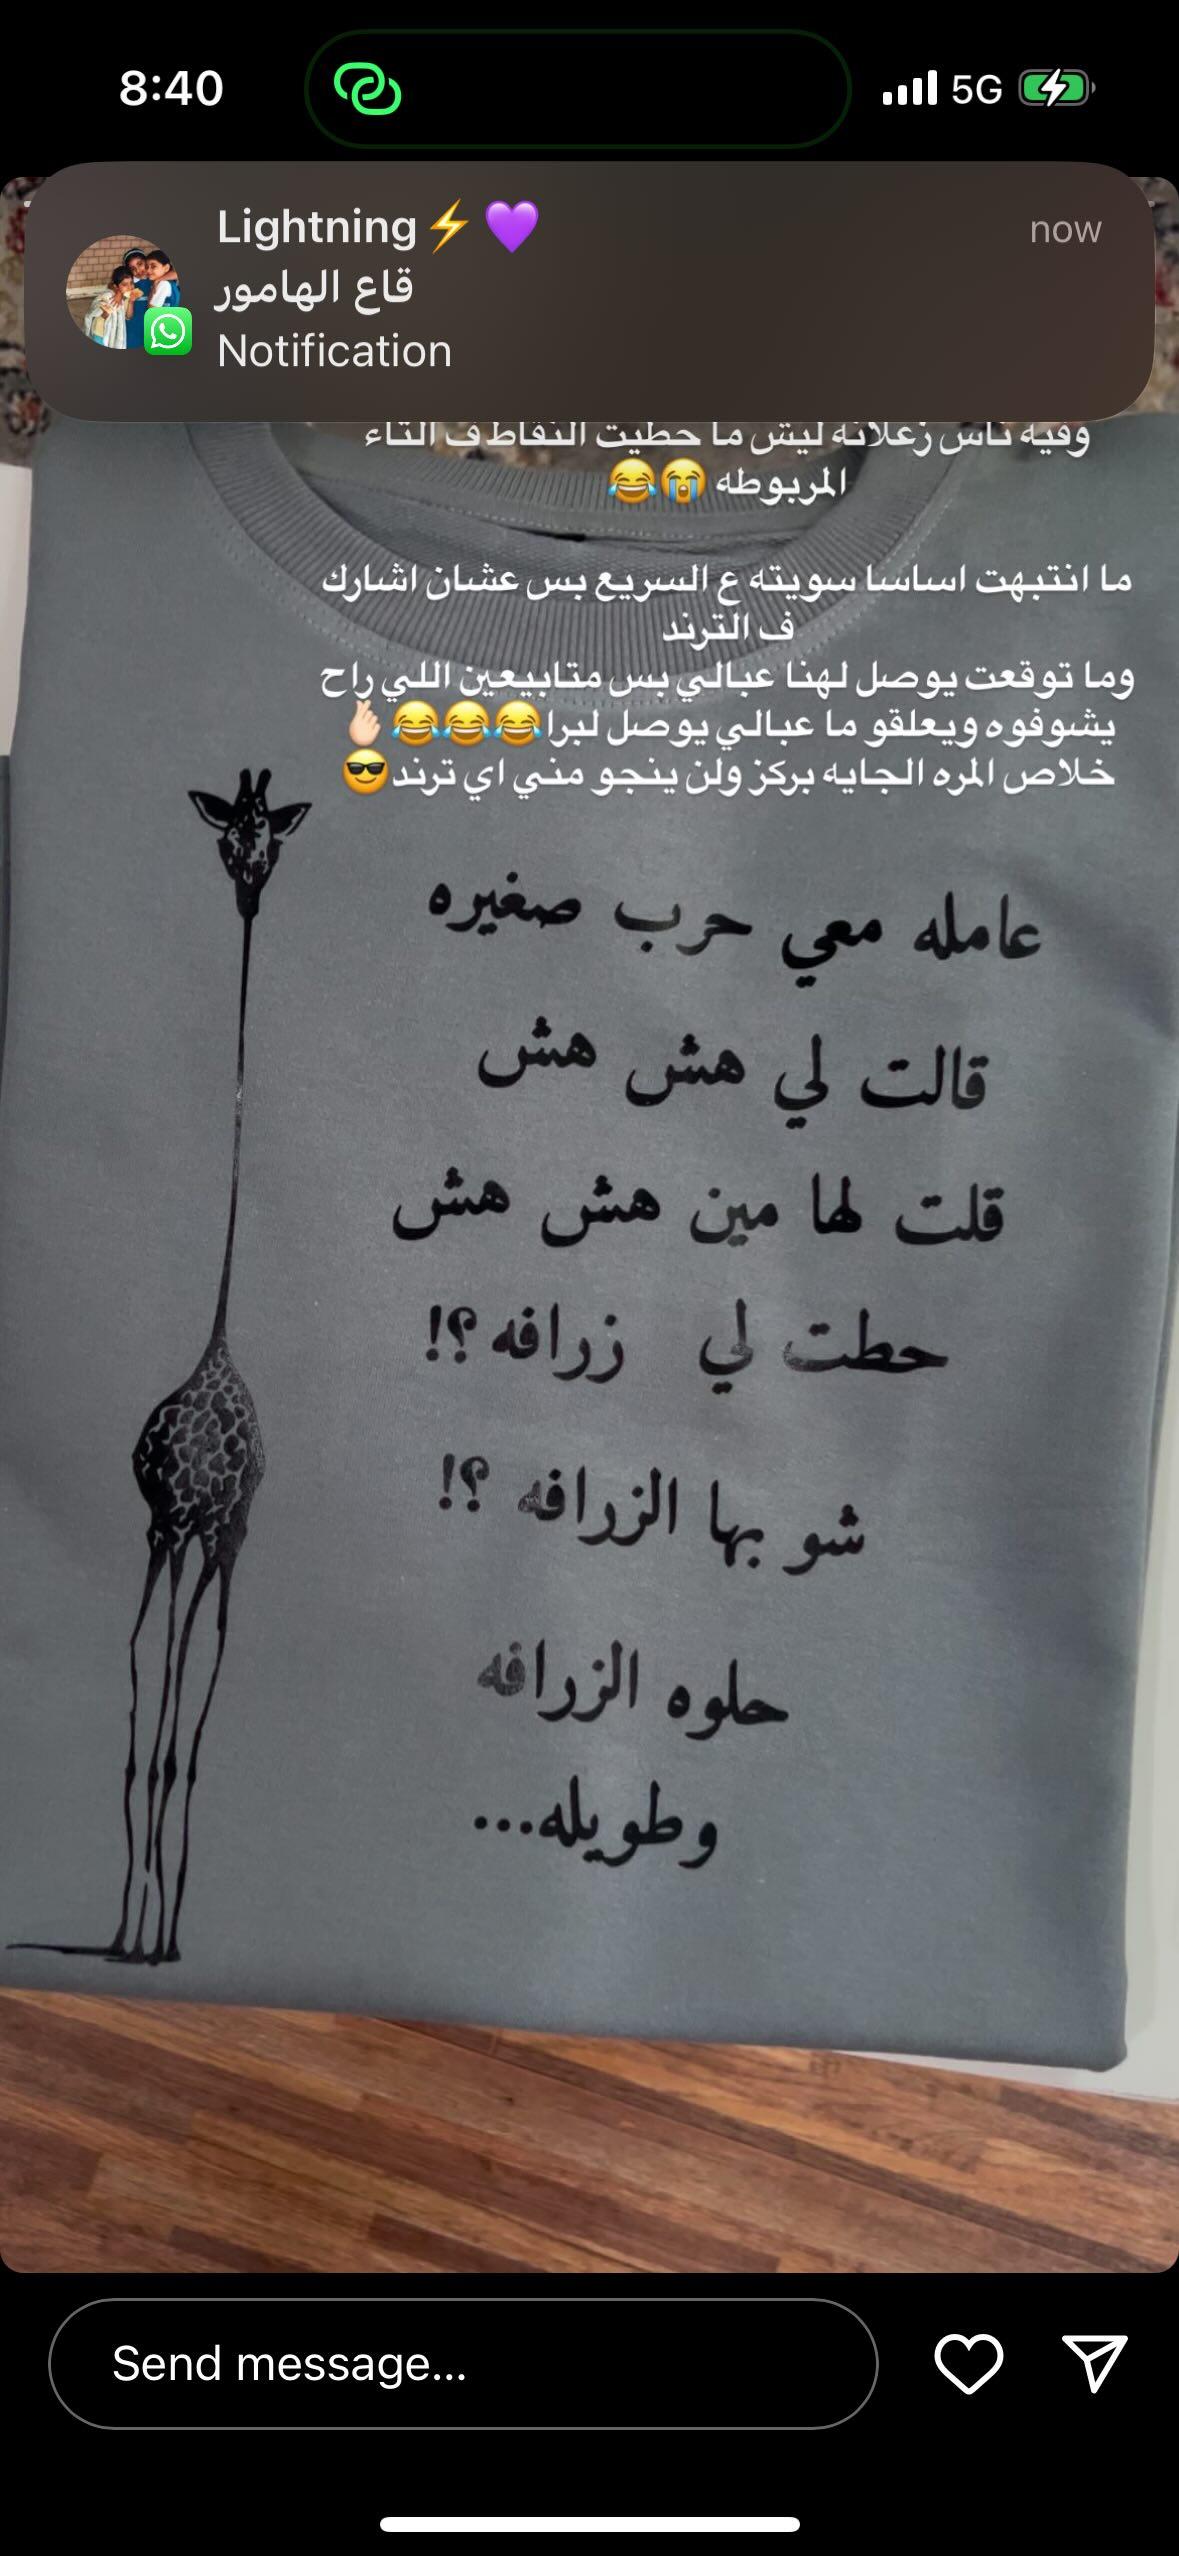 8:40
5G
Lightning⚡💜
now
قاع الهامور
Notification
وفيه ناس زعلانه ليش ما حطيت النقاط ف التاء
المربوطه 😭😂
ما انتبهت اساسا سويته ع السريع بس عشان اشارك
ف الترند
وما توقعت يوصل لهنا عبالي بس متابيعين اللي راح
يشوفوه ويعلقو ما عبالي يوصل لبرا😂😂😂🫰🏻
خلاص المره الجايه بركز ولن ينجو مني اي ترند😎
عامله معي حرب صغيره
قالت لي هش هش
قلت لها مين هش هش
حطت لي زرافه ؟!
شو بها الزرافه ؟!
حلوه الزرافه
وطويله...
Send message...